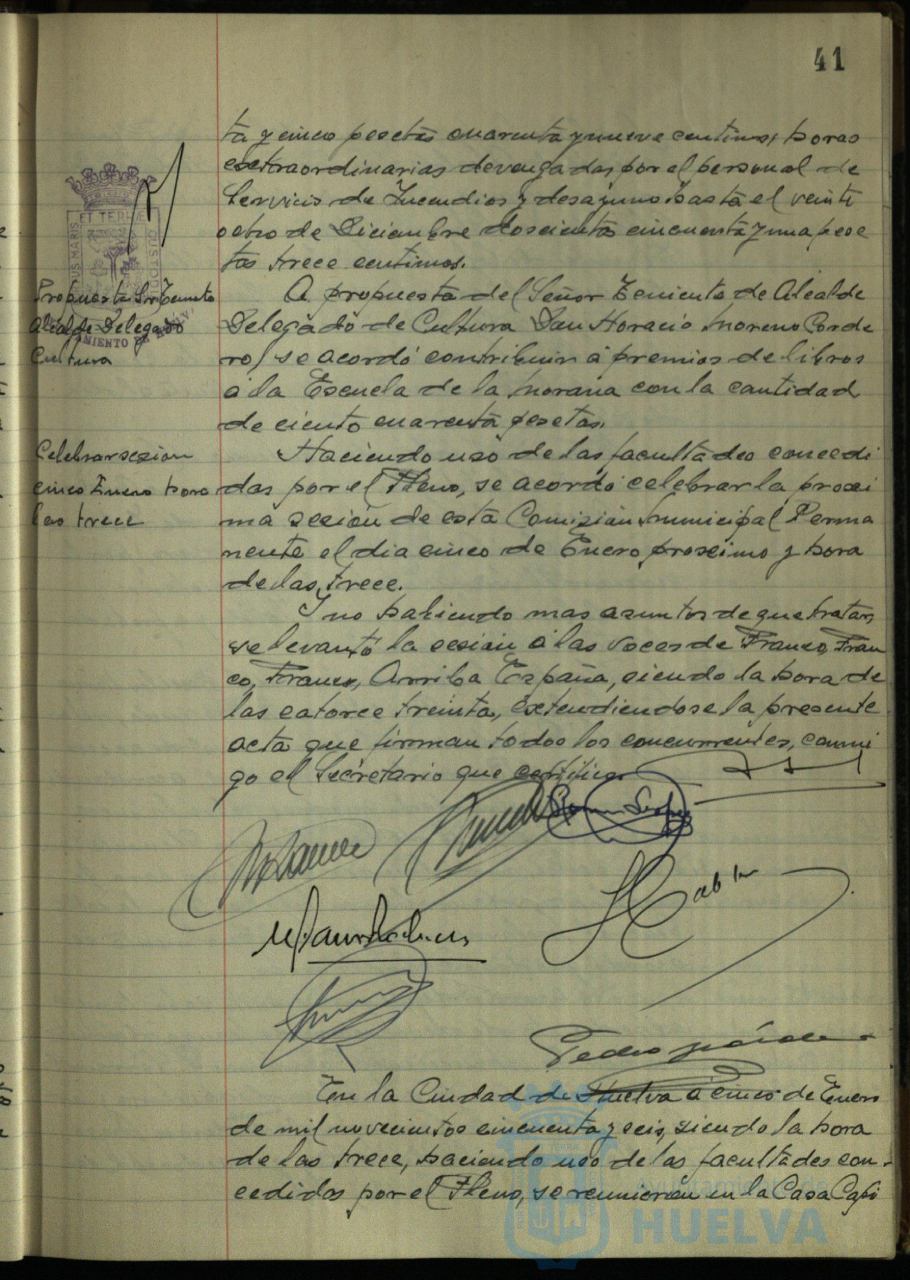 41
ta y cinco pesetas cuarenta y nueve centimos, horas
extraordinarias devengadas por el personal de
Servicio de Incendios y desayunos hasta el veinti
ocho de Diciembre doscientas cincuenta y una pese
tas trece centimos.
Propuesta Sr. Teniente
Alcalde Delegado
Cultura
A propuesta del Señor Teniente de Alcalde
Delegado de Cultura Don Horacio Moreno Corde
ro, se acordó contribuir á premios de libros
á la Escuela de la Morana con la cantidad
de ciento cuarenta pesetas.
Celebrar sesion
cinco Enero hora
las trece
Haciendo uso de las facultades concedi
das por el Pleno, se acordó celebrar la proxi
ma sesión de esta Comisión municipal Perma
nente el dia cinco de Enero proximo y hora
de las trece.
Y no habiendo mas asuntos de que tratar,
se levantó la sesión á las voces de Franco, Fran
co, Franco, Arriba España, siendo la hora de
las catorce treinta, extendiendose la presente
acta que firman todos los concurrentes, conmi
go el Secretario que certifico.
Pedro
En la Ciudad de Huelva á cinco de Enero
de mil novecientos cincuenta y seis, siendo la hora
de las trece, haciendo uso de las facultades con-
cedidas por el Pleno, se reunieron en la Casa Capi
Ayuntamiento de
HUELVA